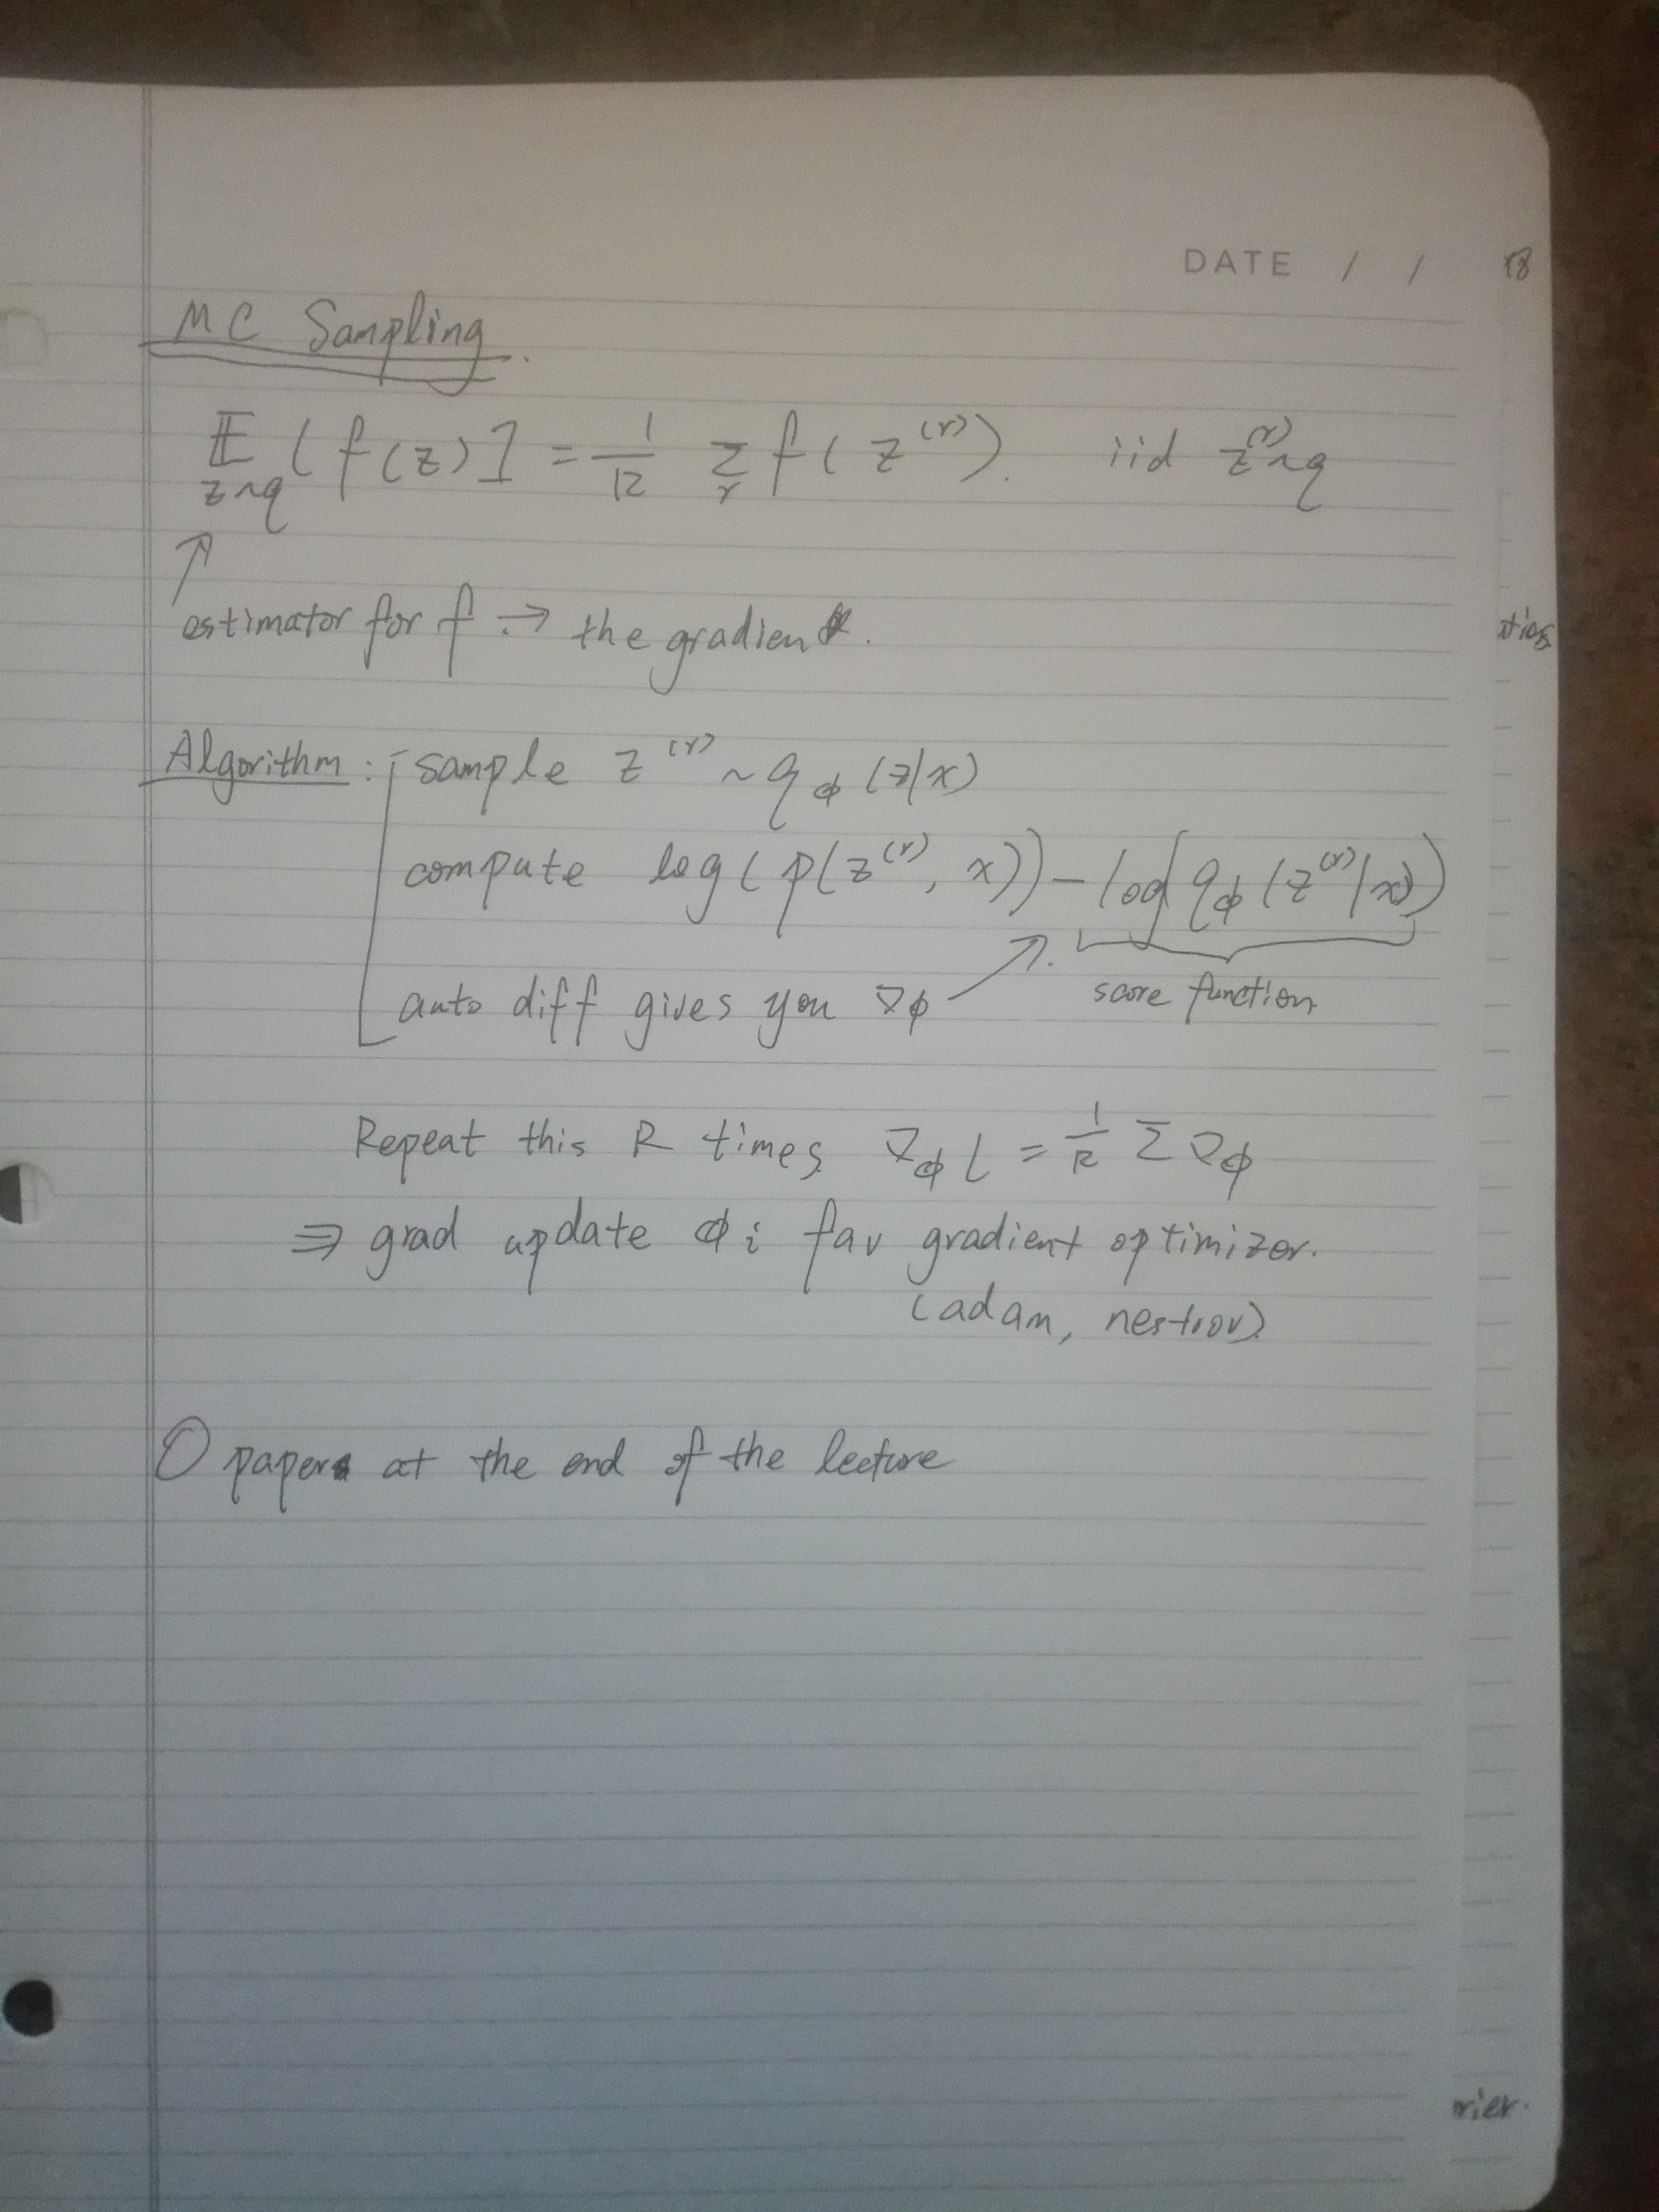 DATE / /
MC Sampling.
𝔼 z~q [f(z)] = 1/R Σ_r f(z^(r)). iid z^(r)~q
↑
estimator for f → the gradient.
Algorithm: sample z^(r) ~ q_φ(z|x)
compute log(p(z^(r), x)) - log(q_φ(z^(r)|x))
auto diff gives you ∇φ ↗ score function
Repeat this R times ∇_φ L = 1/R Σ ∇φ
⇒ grad update φ; fav gradient optimizer.
(adam, nestrov).
O papers at the end of the lecture
rier.